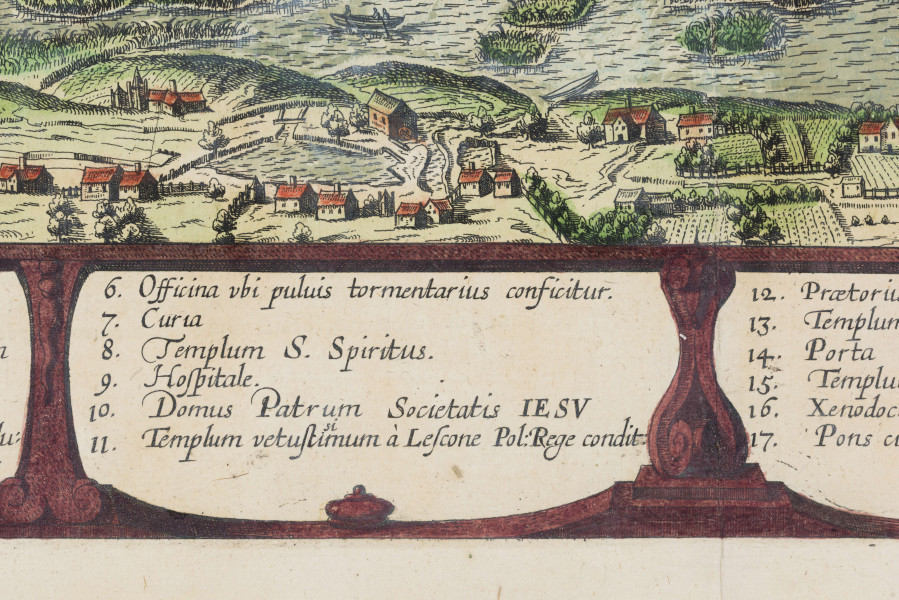 6. Officina vbi puluis tormentarius conficitur.
7. Curia
8. Templum S. Spiritus.
9. Hoſpitale.
10. Domus Patrum Societatis IESV
11. Templum vetuſtiſsimum à Leſcone Pol: Rege condit:
lu:
12. Prætoriu
13. Templum
14. Porta
15. Templu
16. Xenodoc
17. Pons ci